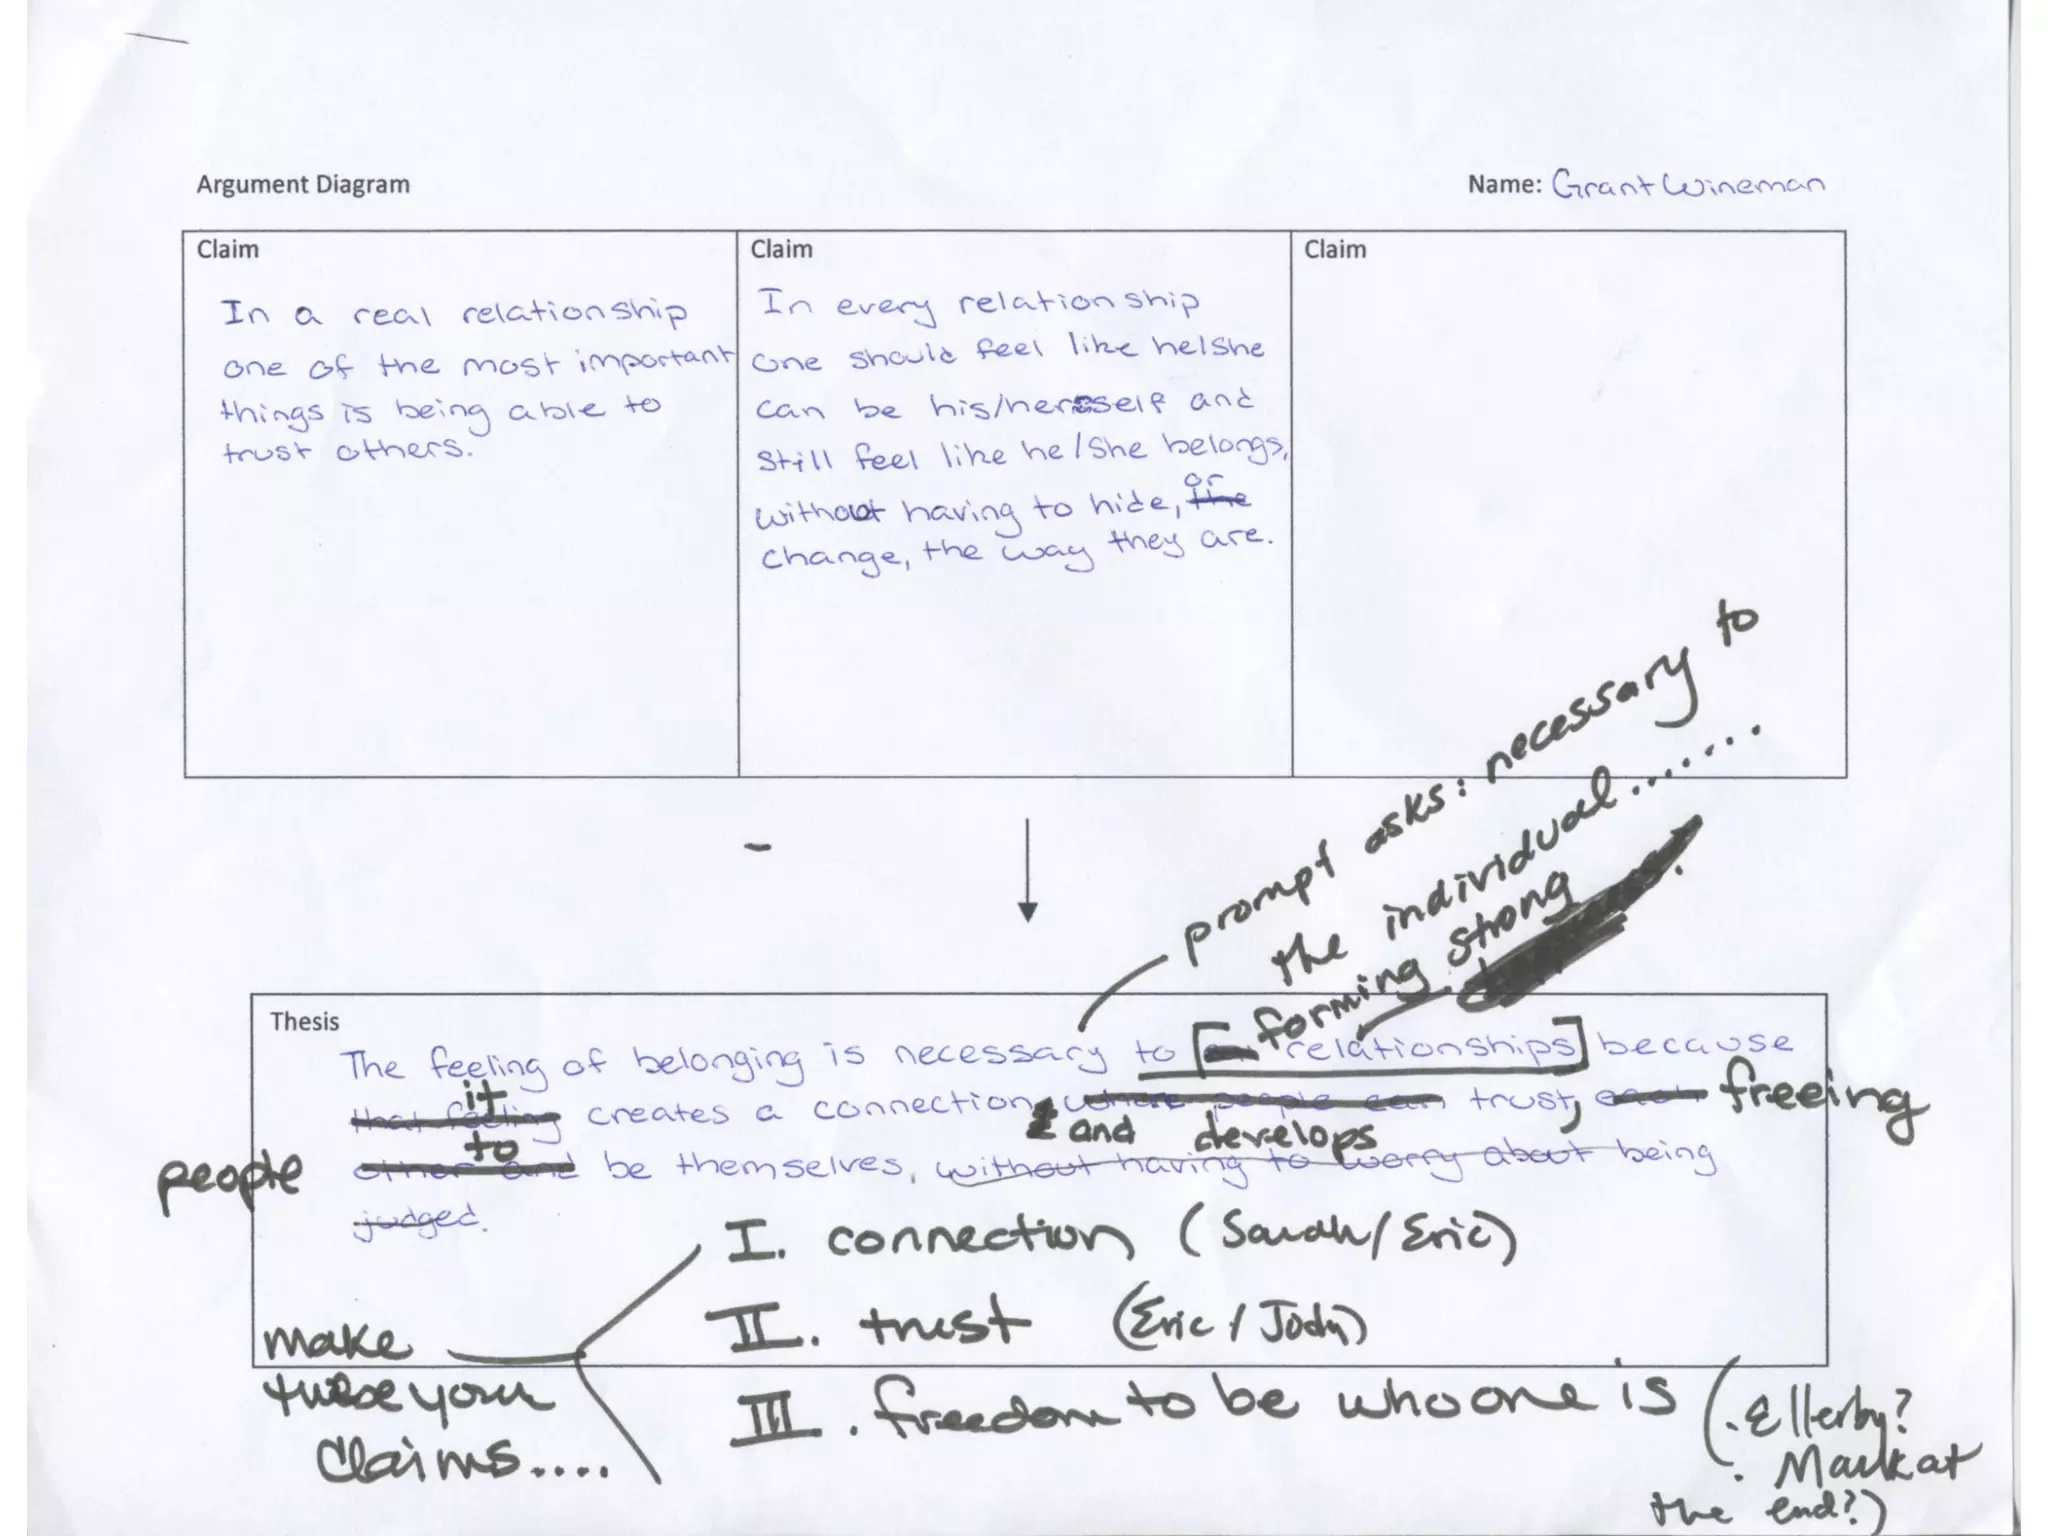 Argument Diagram
Name: Grant Wineman
Claim
In a real relationship
one of the most important
things is being able to
trust others.
Claim
In every relationship
one should feel like he/she
can be his/herself and
still feel like he/she belongs,
or
without having to hide, the
change, the way they are.
Claim
prompt asks: necessary to
the individual.......
forming strong
Thesis
The feeling of belonging is necessary to relationships because
it
that feeling creates a connection where people can trust, each freeing
and develops
to
people other and be themselves, without having to worry about being
judged.
make
these your
claims....
I. connection (Sarah/Eric)
II. trust (Eric/Jody)
III. freedom to be who one is (. Ellerby?
. Mark at
the end?)